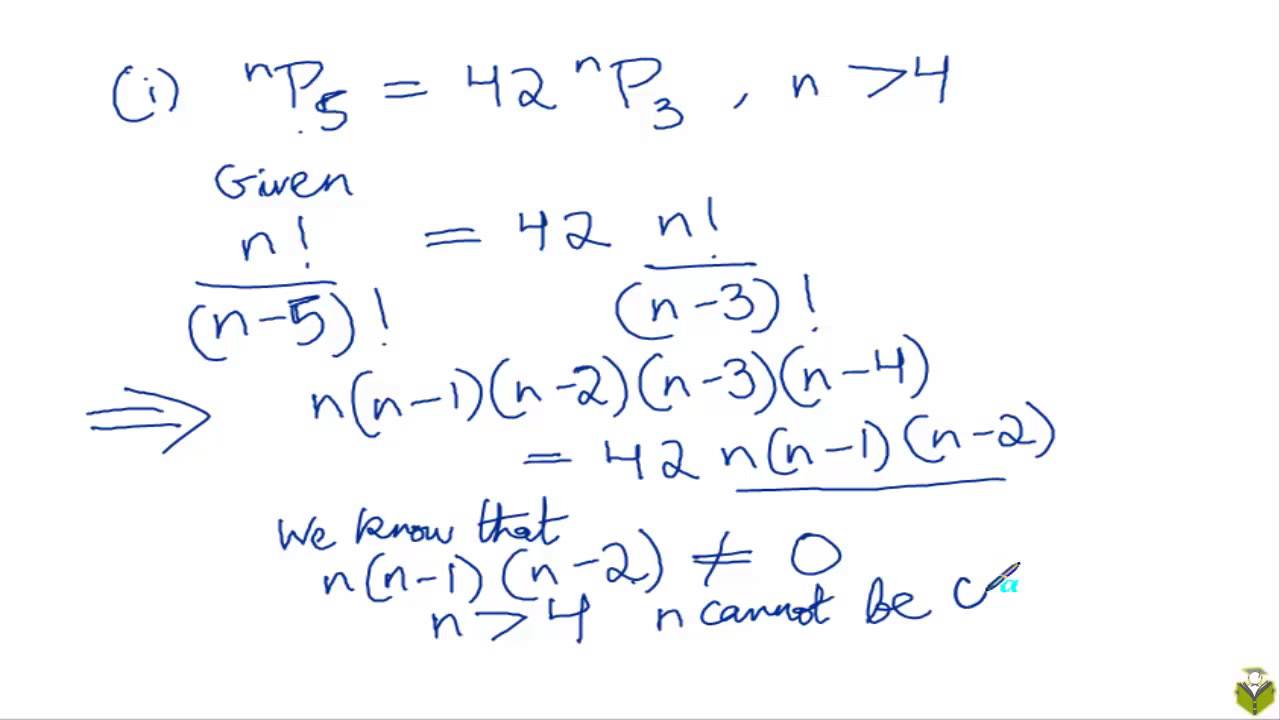 (i) ⁿP₅ = 42 ⁿP₃ , n > 4
Given
n! / (n-5)! = 42 n! / (n-3)!
⇒ n(n-1)(n-2)(n-3)(n-4)
= 42 n(n-1)(n-2)
We know that
n(n-1)(n-2) ≠ 0
n > 4 n cannot be